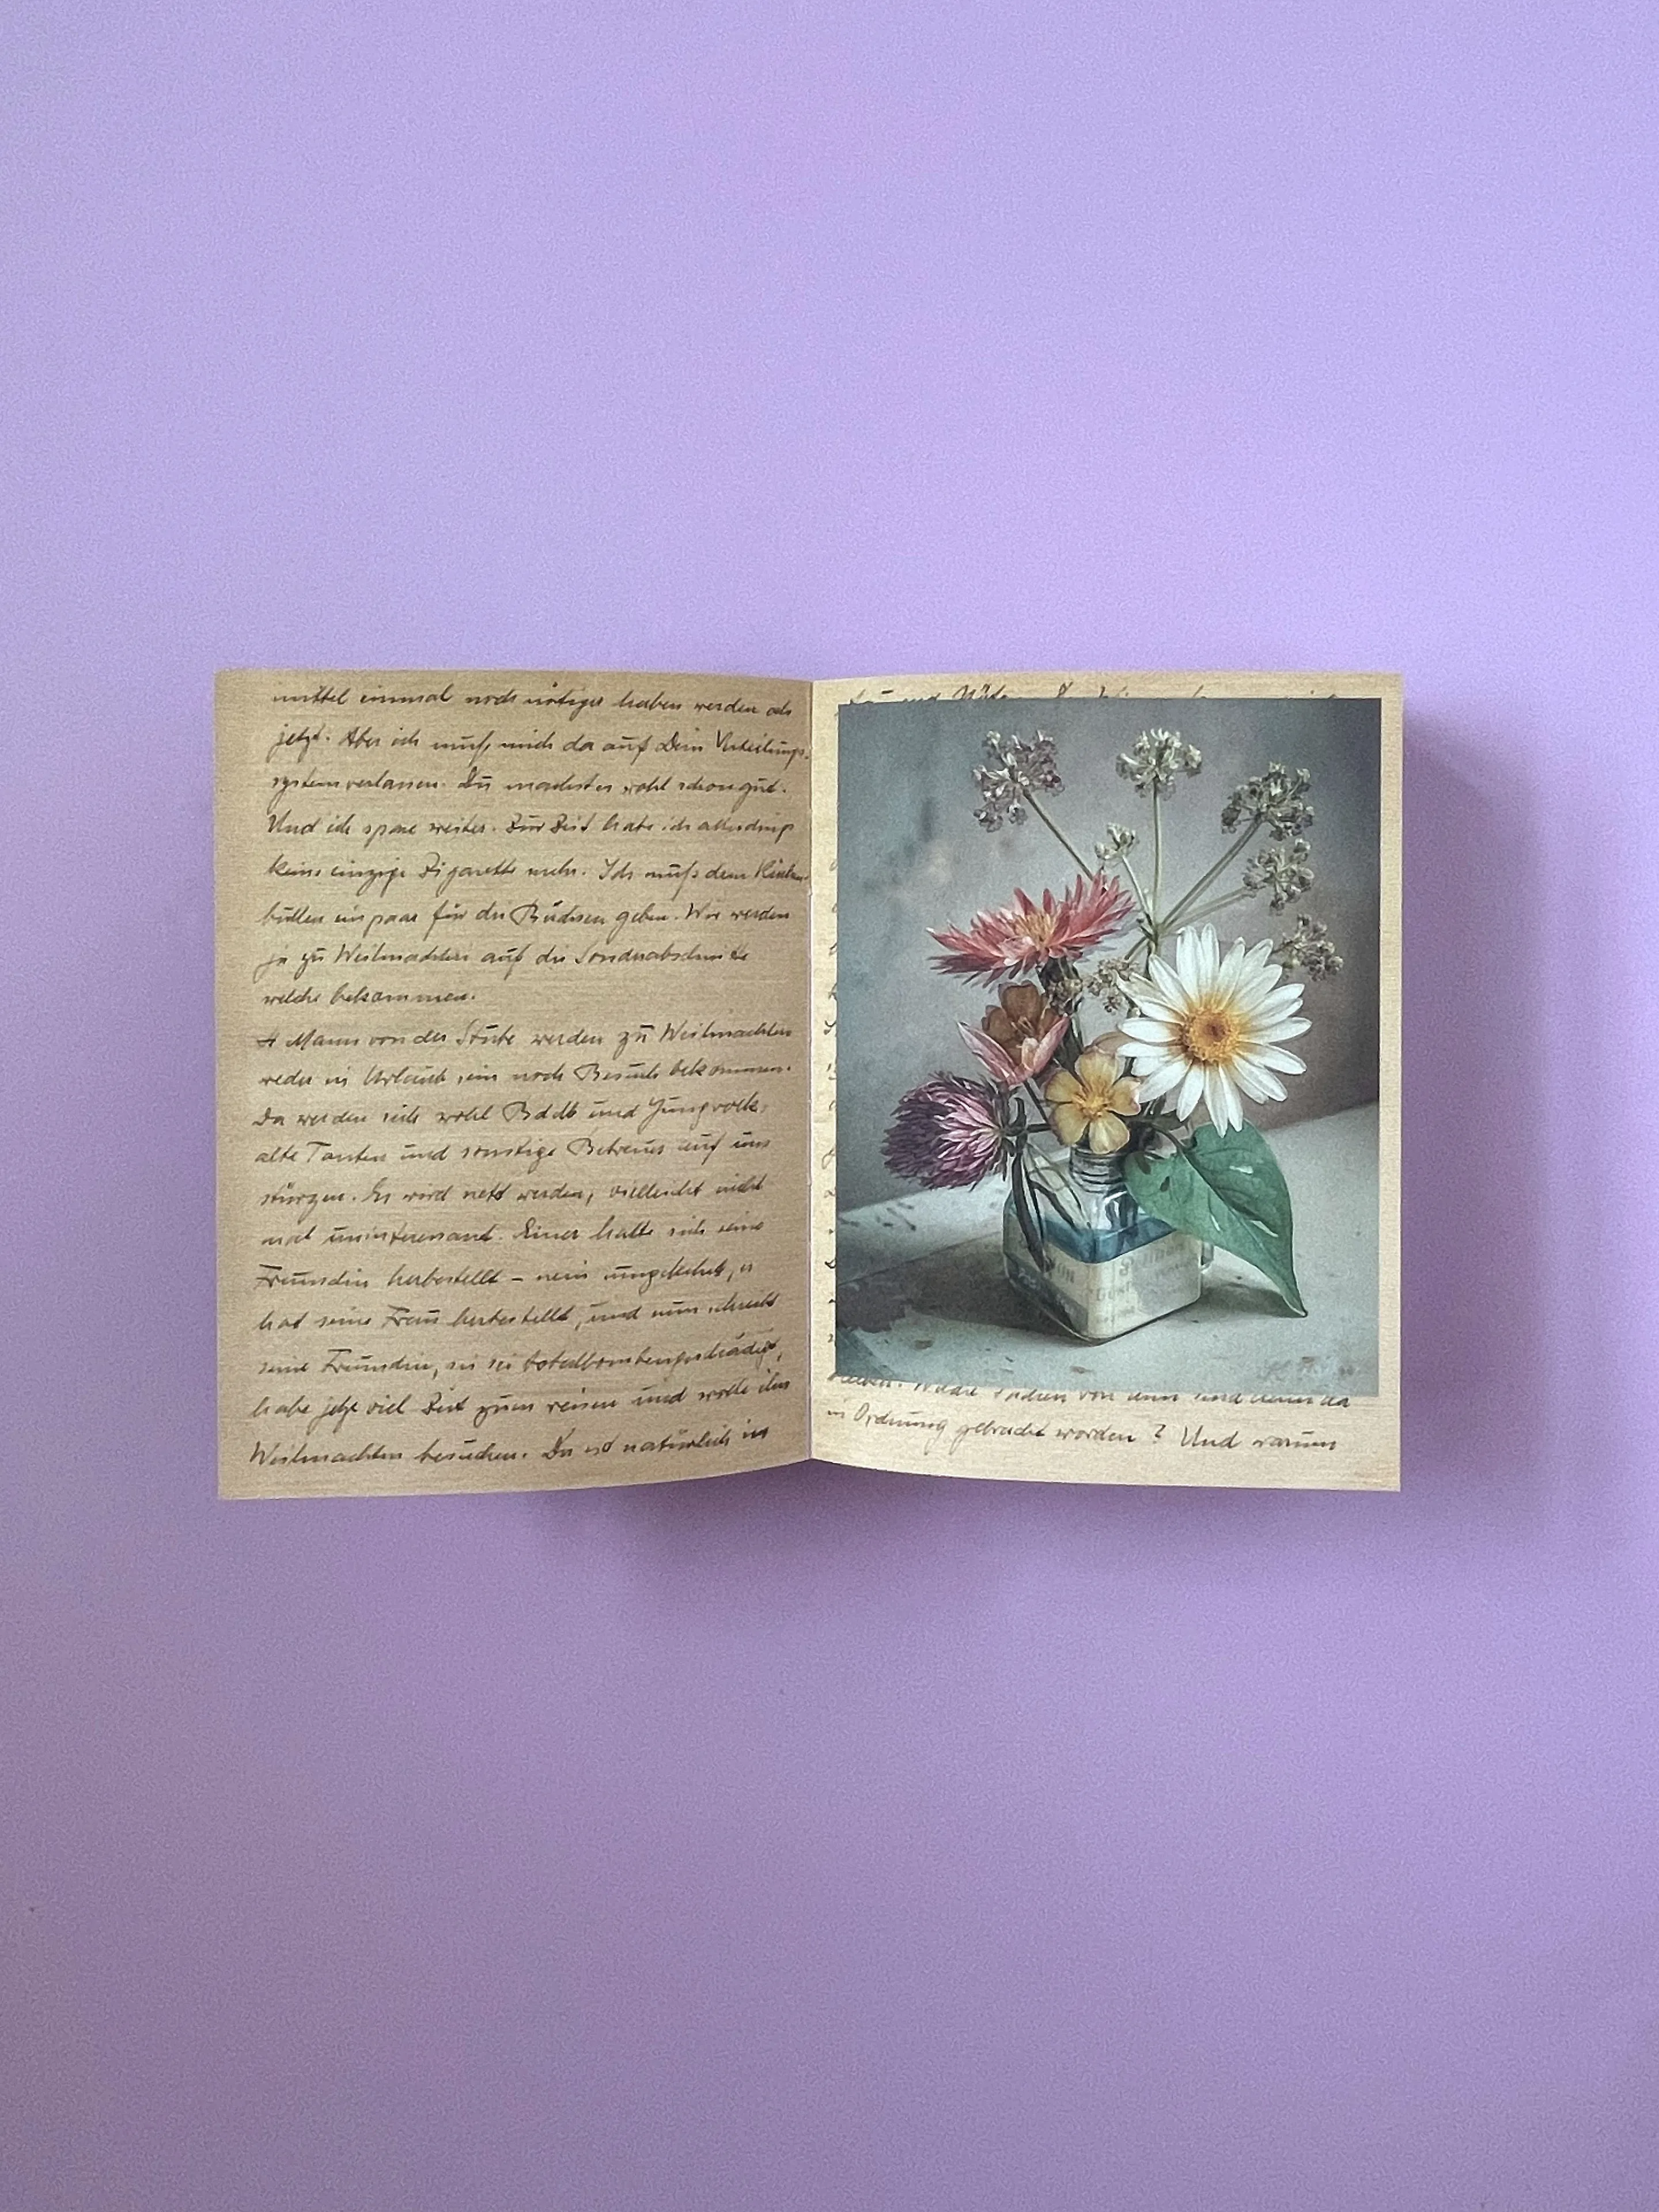 mittel einmal noch nötiger haben werden als
jetzt. Aber ich muß mich da auf Dein Verteilungs-
system verlassen. Du machst es wohl schon gut.
Und ich spare weiter. Zur Zeit habe ich allerdings
keine einzige Zigarette mehr. Ich muß dem
ein paar für die Büchsen geben. Wir werden
ja zu Weihnachten auf die Sonderabschnitte
welche bekommen.
4 Mann von der Stube werden zu Weihnachten
weder in Urlaub sein noch Besuch bekommen.
Da werden sich wohl BdM und Jungvolk,
alte Tanten und sonstige Betreuer auf uns
stürzen. Es wird nett werden, vielleicht nicht
mal uninteressant. Einer hatte sich seine
Freundin herbestellt – nein umgekehrt, er
hat seine Frau herbestellt, und nun schreibt
seine Freundin, sie sei totalbombengeschädigt,
habe jetzt viel Zeit zum reisen und wolle ihn
Weihnachten besuchen. Da ist natürlich in
und
von und
in Ordnung gebracht worden? Und warum